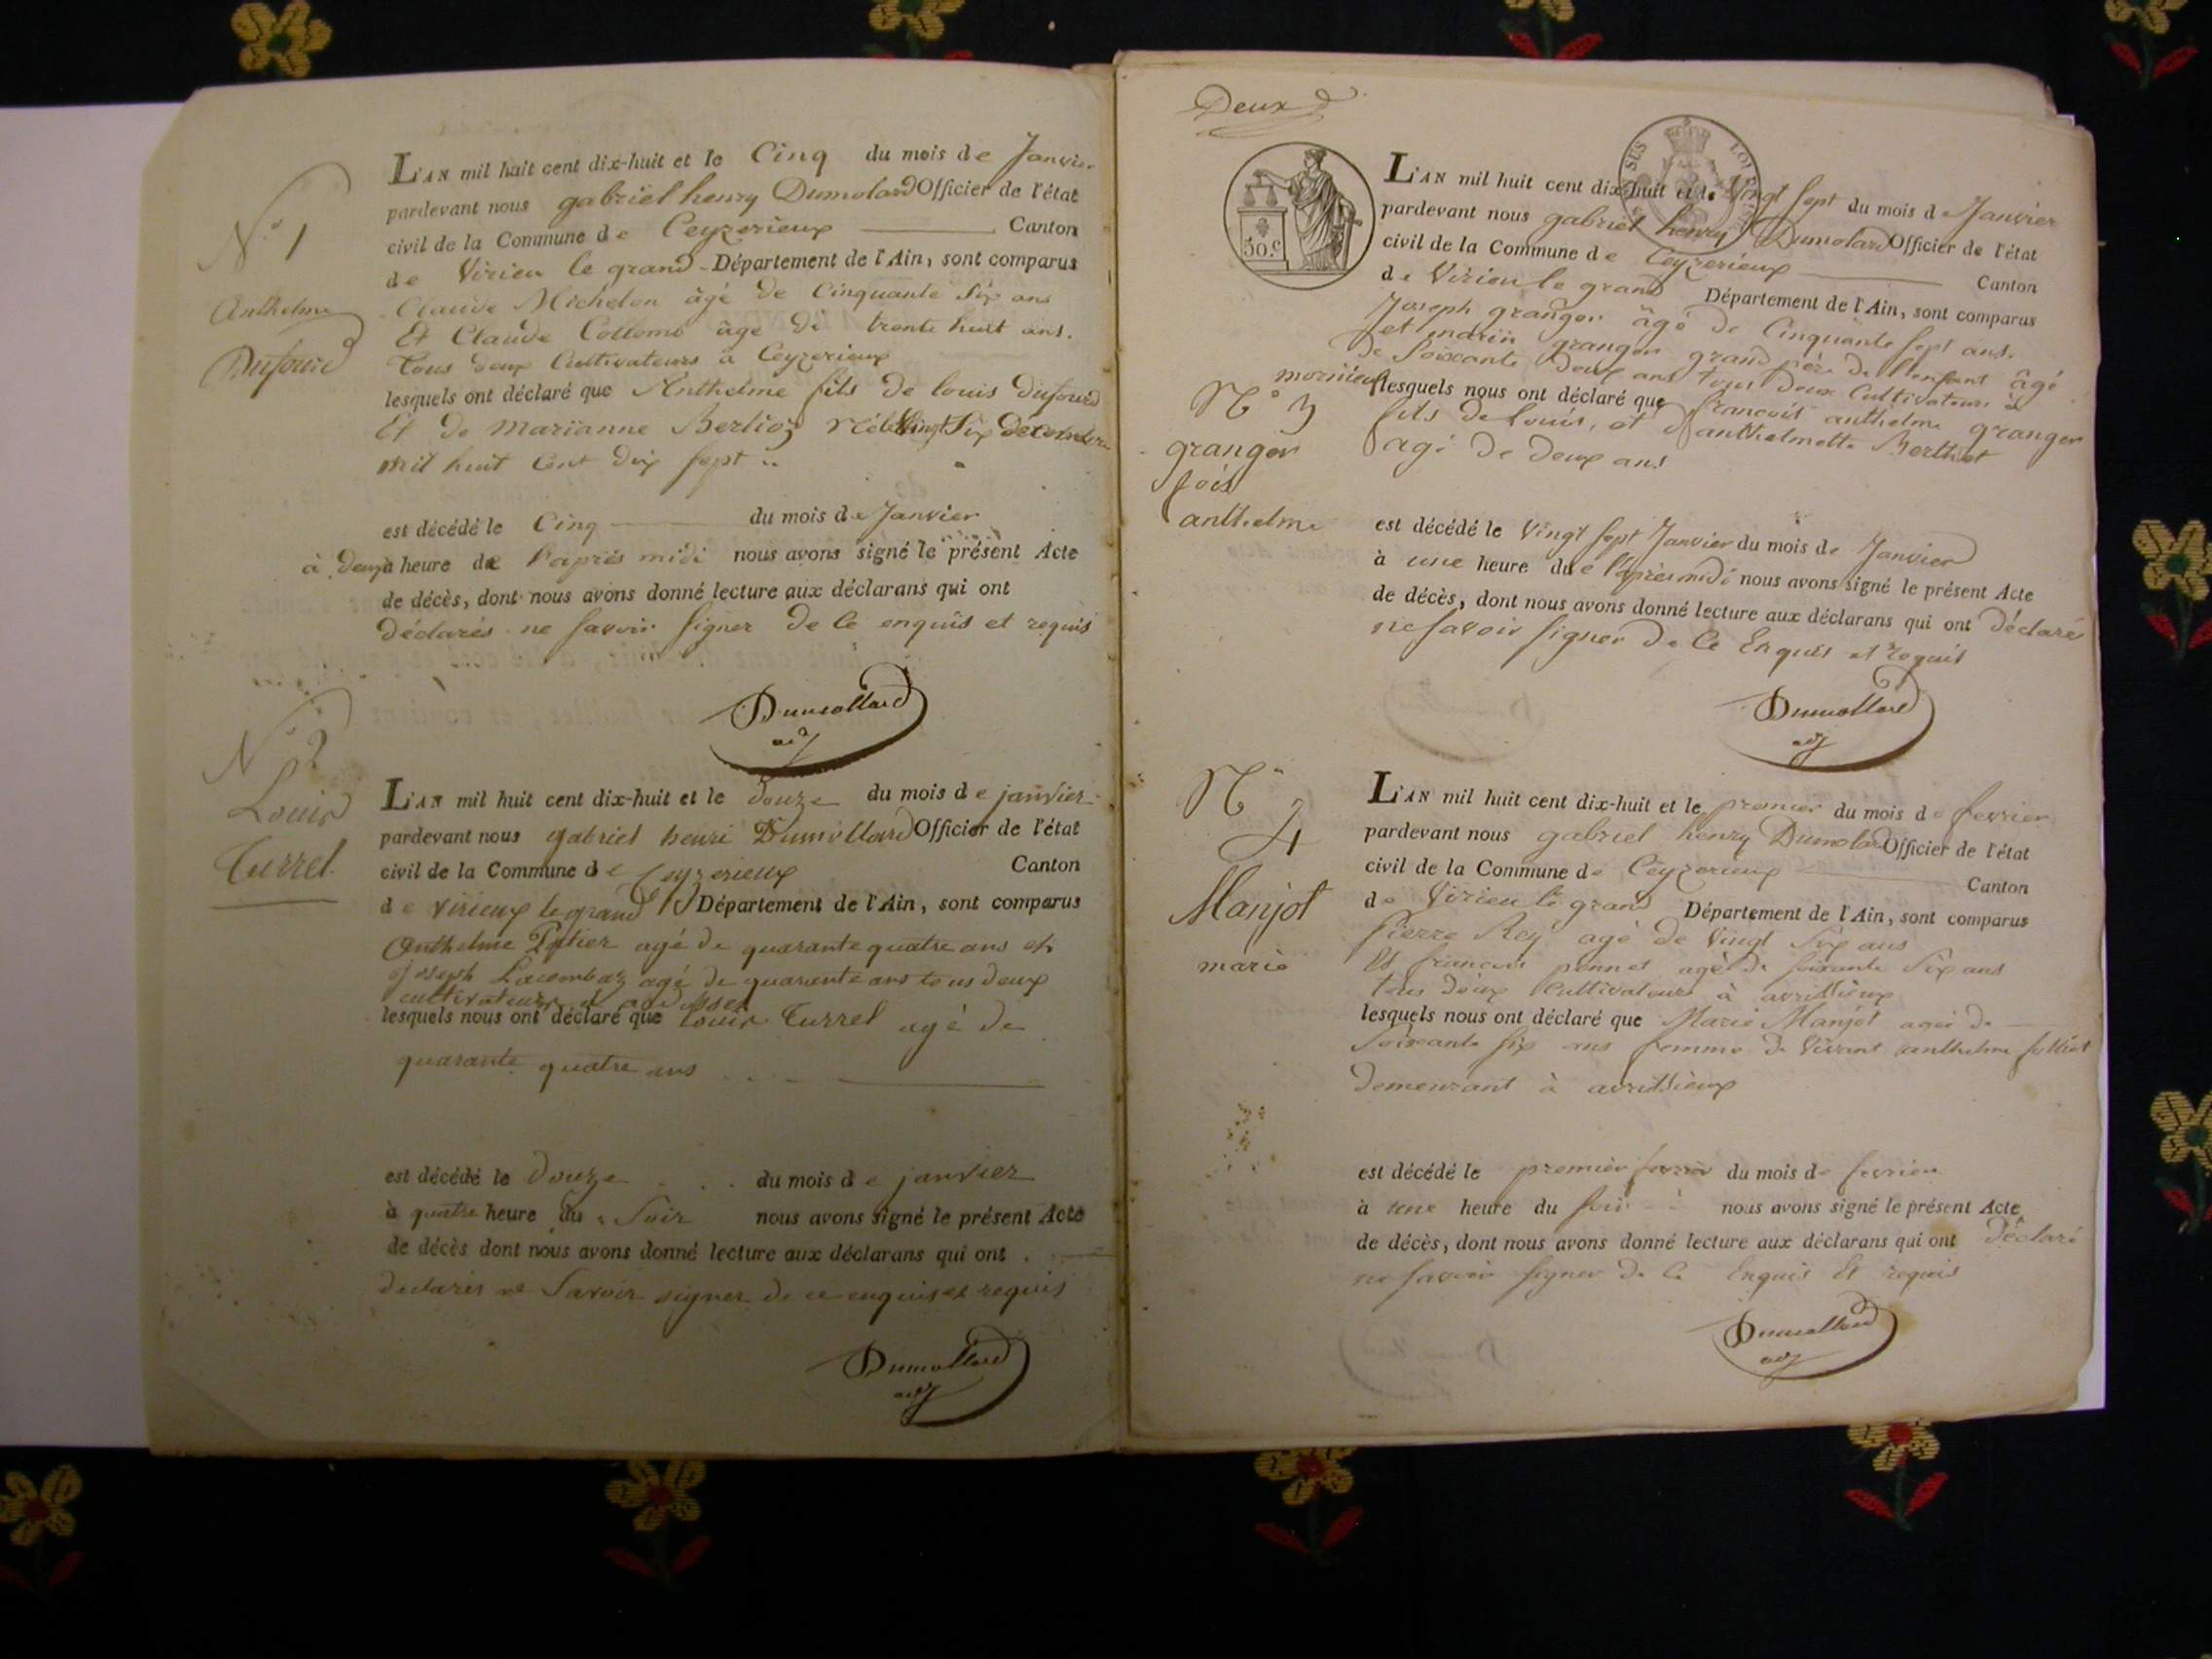 N° 1
Anthelme
Dufourd
L'AN mil huit cent dix-huit et le Cinq du mois de Janvier
pardevant nous gabriel henry Dumolard Officier de l'état
civil de la Commune de Ceyzerieux Canton
de Virieu le grand Département de l'Ain, sont comparus
Claude Michelon âgé de Cinquante Six ans
Et Claude Collomb âgé de trente huit ans.
Tous deux Cultivateurs à Ceyzerieux
lesquels ont déclaré que Anthelme fils de louis dufourd
Et de Marianne Berlioz Né le Vingt Six decembre
mil huit Cent dix sept
est décédé le Cinq du mois de Janvier
à deux heure de l'après midi nous avons signé le présent Acte
de décès, dont nous avons donné lecture aux déclarans qui ont
déclarés ne savoir signer de Ce enquis et requis
Dumollard
adj
N° 2
Louis
Turrel
L'AN mil huit cent dix-huit et le douze du mois de janvier
pardevant nous gabriel henri Dumollard Officier de l'état
civil de la Commune de Ceyzerieux Canton
de Virieux le grand Département de l'Ain, sont comparus
Anthelme agé de quarante quatre ans et
joseph Lacombaz agé de quarante ans tous deux
cultivateurs
lesquels nous ont déclaré que Louis Turrel agé de
quarante quatre ans
est décédé le douze du mois de janvier
à quatre heure du Soir nous avons signé le présent Acte
de décès dont nous avons donné lecture aux déclarans qui ont
declarés ne Savoir signer de ce enquis et requis
Dumollard
adj
Deux
50 c.
L'AN mil huit cent dix-huit et le Vingt sept du mois de Janvier
pardevant nous gabriel henry Dumolard Officier de l'état
civil de la Commune de Ceyzerieux Canton
de Virieu le grand Département de l'Ain, sont comparus
Joseph granger âgé de Cinquante sept ans.
et granger grand père de l'enfant âgé
de Soixante deux ans tous deux Cultivateurs à
mornieu lesquels nous ont déclaré que francois anthelme granger
N° 3
granger
fois
anthelme
fils de louis, et d'anthelmette Berthet
agé de deux ans
est décédé le Vingt sept Janvier du mois de Janvier
à une heure due l'après midi nous avons signé le présent Acte
de décès, dont nous avons donné lecture aux déclarans qui ont déclaré
ne savoir signer de Ce Enquis et requis
Dumollard
adj
N° 4
Manjot
marie
L'AN mil huit cent dix-huit et le premier du mois de fevrier
pardevant nous gabriel henry Dumolard Officier de l'état
civil de la Commune de Ceyzerieux Canton
de Virieu le grand Département de l'Ain, sont comparus
Pierre Rey agé de Vingt Six ans
Et francois ponnet agé de soixante Six ans
tous deux Cultivateurs à avrissieux
lesquels nous ont déclaré que Marie Manjot agée de
Soixante six ans femme de Vivant anthelme
demeurant à avrissieux
est décédé le premier fevrier du mois de fevrier
à une heure du soir nous avons signé le présent Acte
de décès, dont nous avons donné lecture aux déclarans qui ont déclaré
ne savoir signer de Ce Enquis Et requis
Dumollard
adj